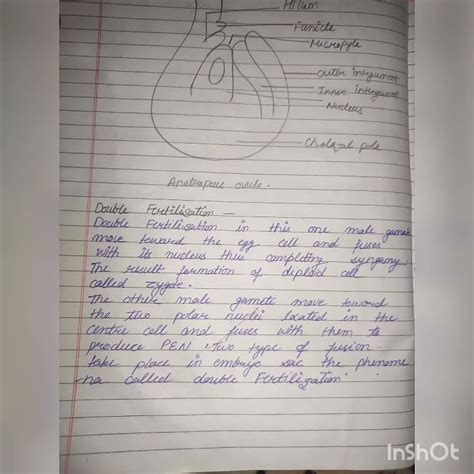 Hilum
Funicle
Micropyle
outer integument
Inner integument
Nucleus
Chalazal pole
Anatropous ovule.
Double Fertilisation —
Double Fertilization in this one male gamete
move toward the egg cell and fuses
with its nucleus thus completing syngamy.
The result formation of diploid cell
called zygote.
The other male gamete move toward
the two polar nuclei located in the
centre cell and fuses with them to
produce PEN two type of fusion
take place in embryo sac the phenome
-na called double Fertilization
InShOt